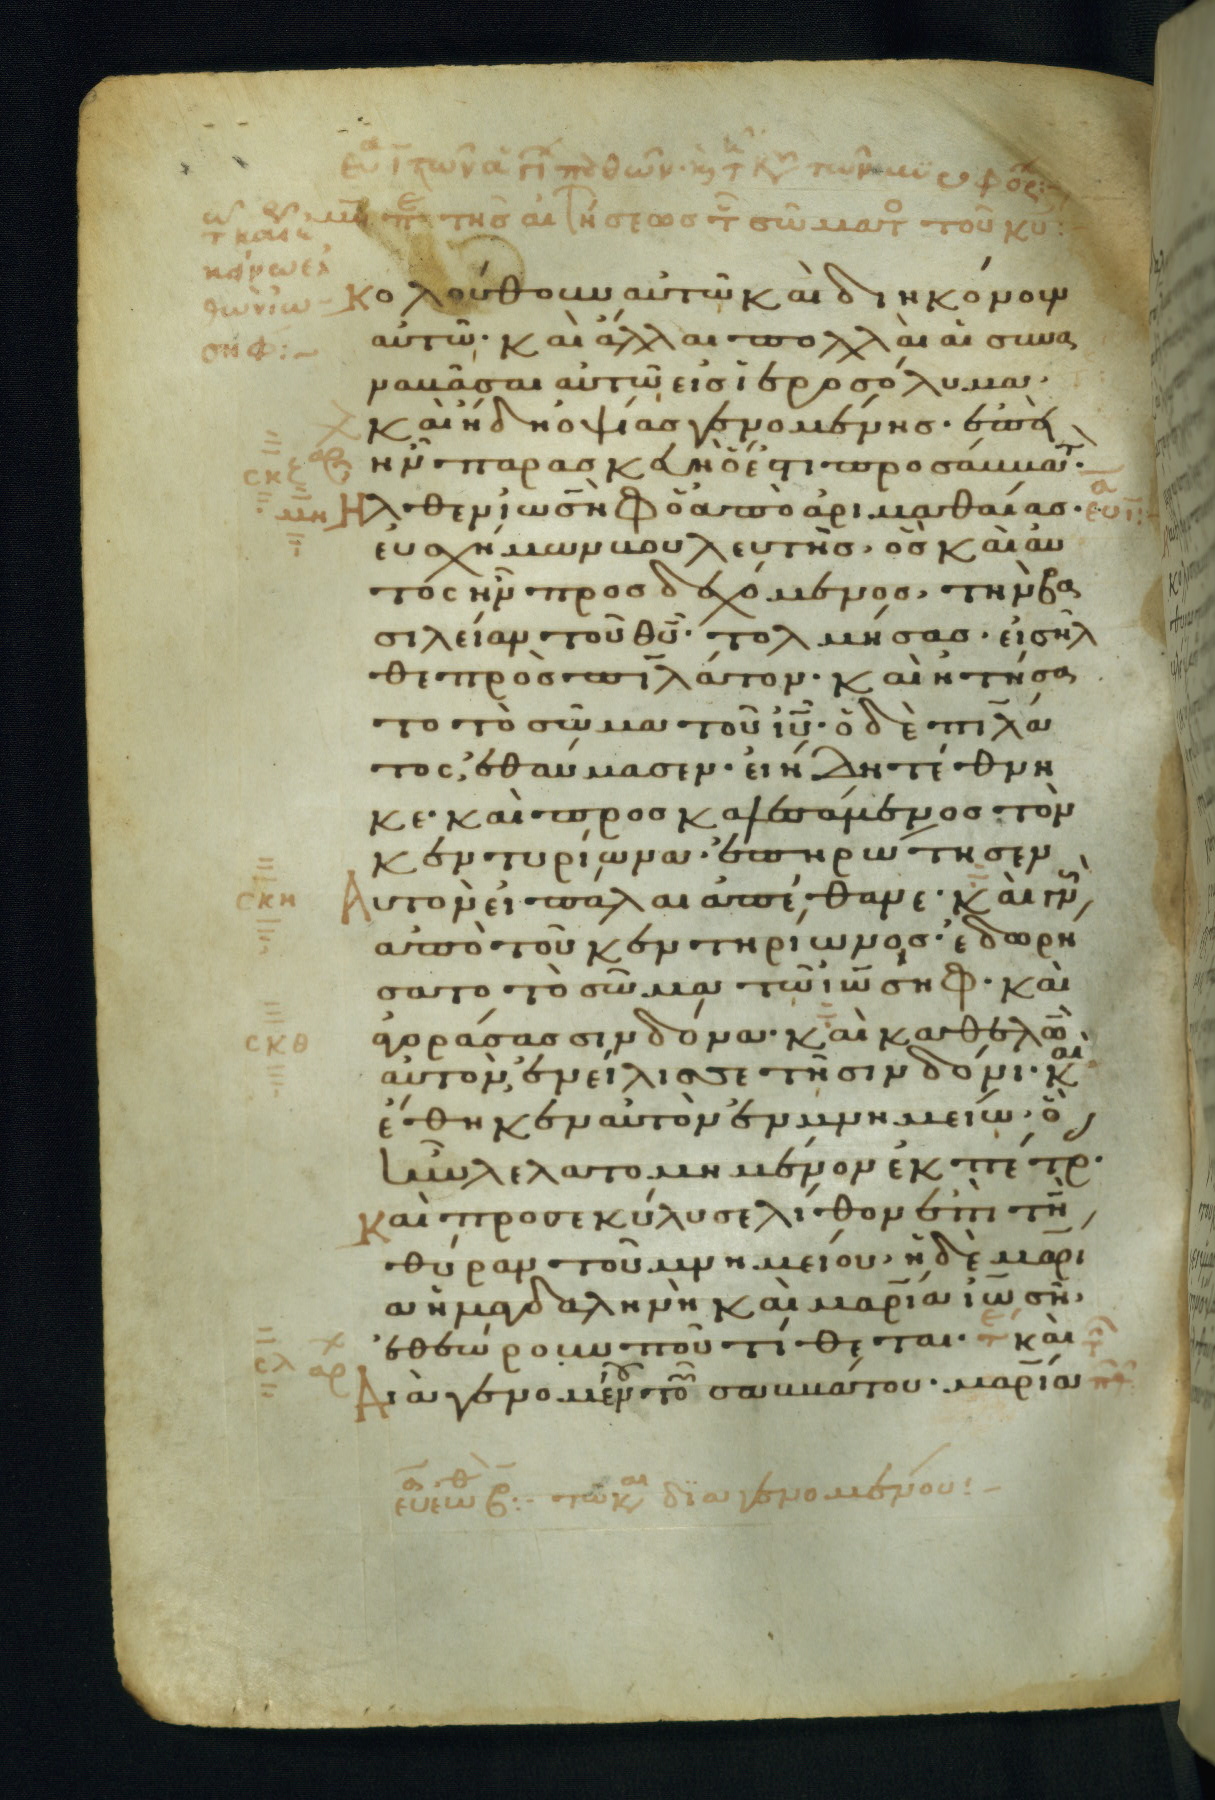 κολούθουν αὐτῶ καὶ διηκόνουν
αὐτῶ· καὶ ἄλλαι πολλαὶ αἱ συνα
ναβᾶσαι αὐτῶ εἰς ἱεροσόλυμα·
καὶ ἤδη ὀψίας γενομένης· ἐπεὶ
ἦν παρασκευὴ ὅ ἐστι προσάββατ·
Ηλθεν ἰωσὴφ ὁ ἀπὸ ἀριμαθαίας·
εὐσχήμων βουλευτὴς, ὃς καὶ αυ
τὸς ἦν προσδεχόμενος, τὴν βα
σιλείαν τοῦ θῦ· τολμήσας· εἰσῆλ
θε πρὸς πιλάτον· καὶ ητήσα
το τὸ σῶμα τοῦ ἰῦ· ὁ δὲ πιλά
τος, ἐθαύμασεν· εἰ ήδη τέθνη
κε· καὶ προσκαλεσάμενος τὸν
κεντυρίωνα· ἐπηρώτησεν
Αυτὸν εἰ πάλαι ἀπέθανε· καὶ γν
ἀπὸ τοῦ κεντηρίωνος· ἐδωρή
σατο τὸ σῶμα τῶ ἰωσήφ· καὶ
ἀγοράσας σινδόνα· καὶ καθελὼ
αὐτὸν, ἐνείλισσε τῆ σινδόνι· καὶ
ἔθηκεν αὐτὸν ἐν μνημείω· ὃ
ἦν λελατομημένον ἐκ πέτρ·
Καὶ προσεκύλυσε λίθον ἐπὶ τὴ
θύραν τοῦ μνημείου, ἡ δὲ μαρι
α ἡ μαγδαληνὴ καὶ μαρία ἰωσῆ·
ἐθεώρουν ποῦ τίθεται· καὶ
Διαγενομένου τοῦ σαββάτου· μαρία
σκζ
μη
σκη
σκθ
σλ
διαγενομένου:-